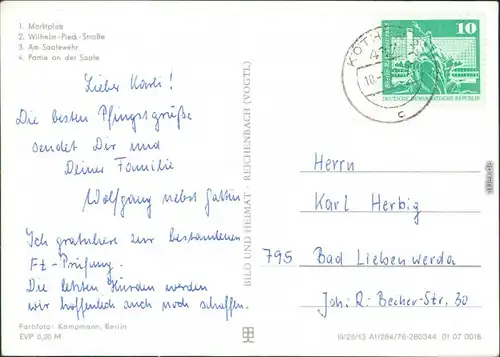 1. Marktplatz
2. Wilhelm-Pieck-Straße
3. Am Saalewehr
4. Partie an der Saale
Lieber Karli!
Die besten Pfingstgrüße
sendet Dir und
Deiner Familie
Wolfgang nebst Gattin
Ich gratuliere zur bestandenen
Fz-Prüfung.
Die letzten Hürden werden
wir hoffentlich auch noch schaffen.
Farbfoto: Kampmann, Berlin
EVP 0,20 M
BILD UND HEIMAT · REICHENBACH (VOGTL)
KÖTHEN
c
10
DEUTSCHE DEMOKRATISCHE REPUBLIK
Herrn
Karl Herbig
795 Bad Liebenwerda
Joh.-R.-Becher-Str. 30
A1/284/76-280344 01 07 0016